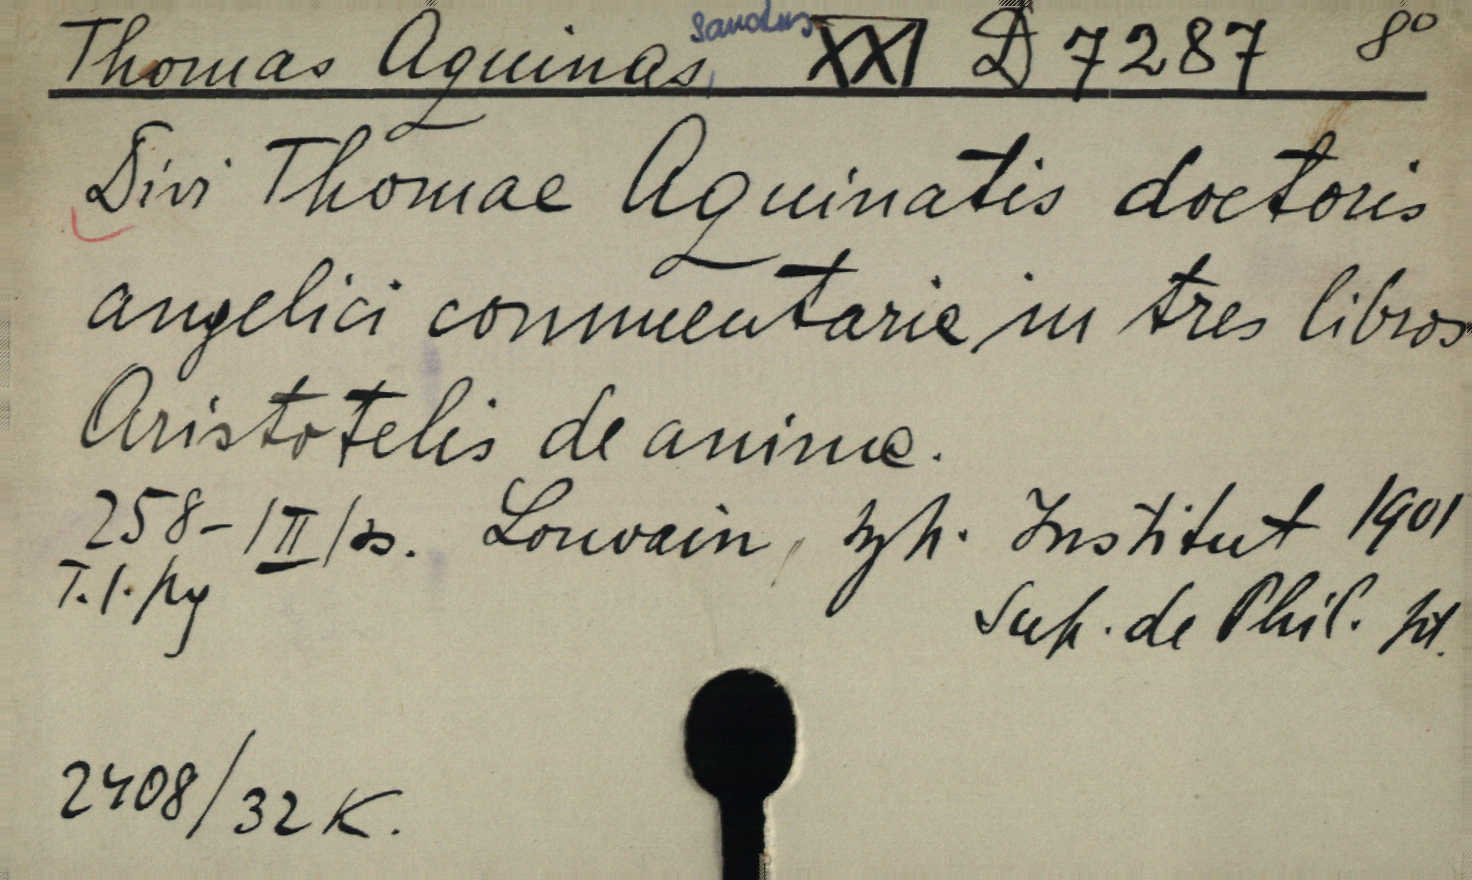 Thomas Aquinas, Sanctus XXI D 7287 8°
Divi Thomae Aquinatis doctoris
angelici commentaria in tres libros
Aristotelis de anima.
258-/II/s. Louvain, typ. Institut 1901
T.1.
Sup. de Phil.
2408/32 K.